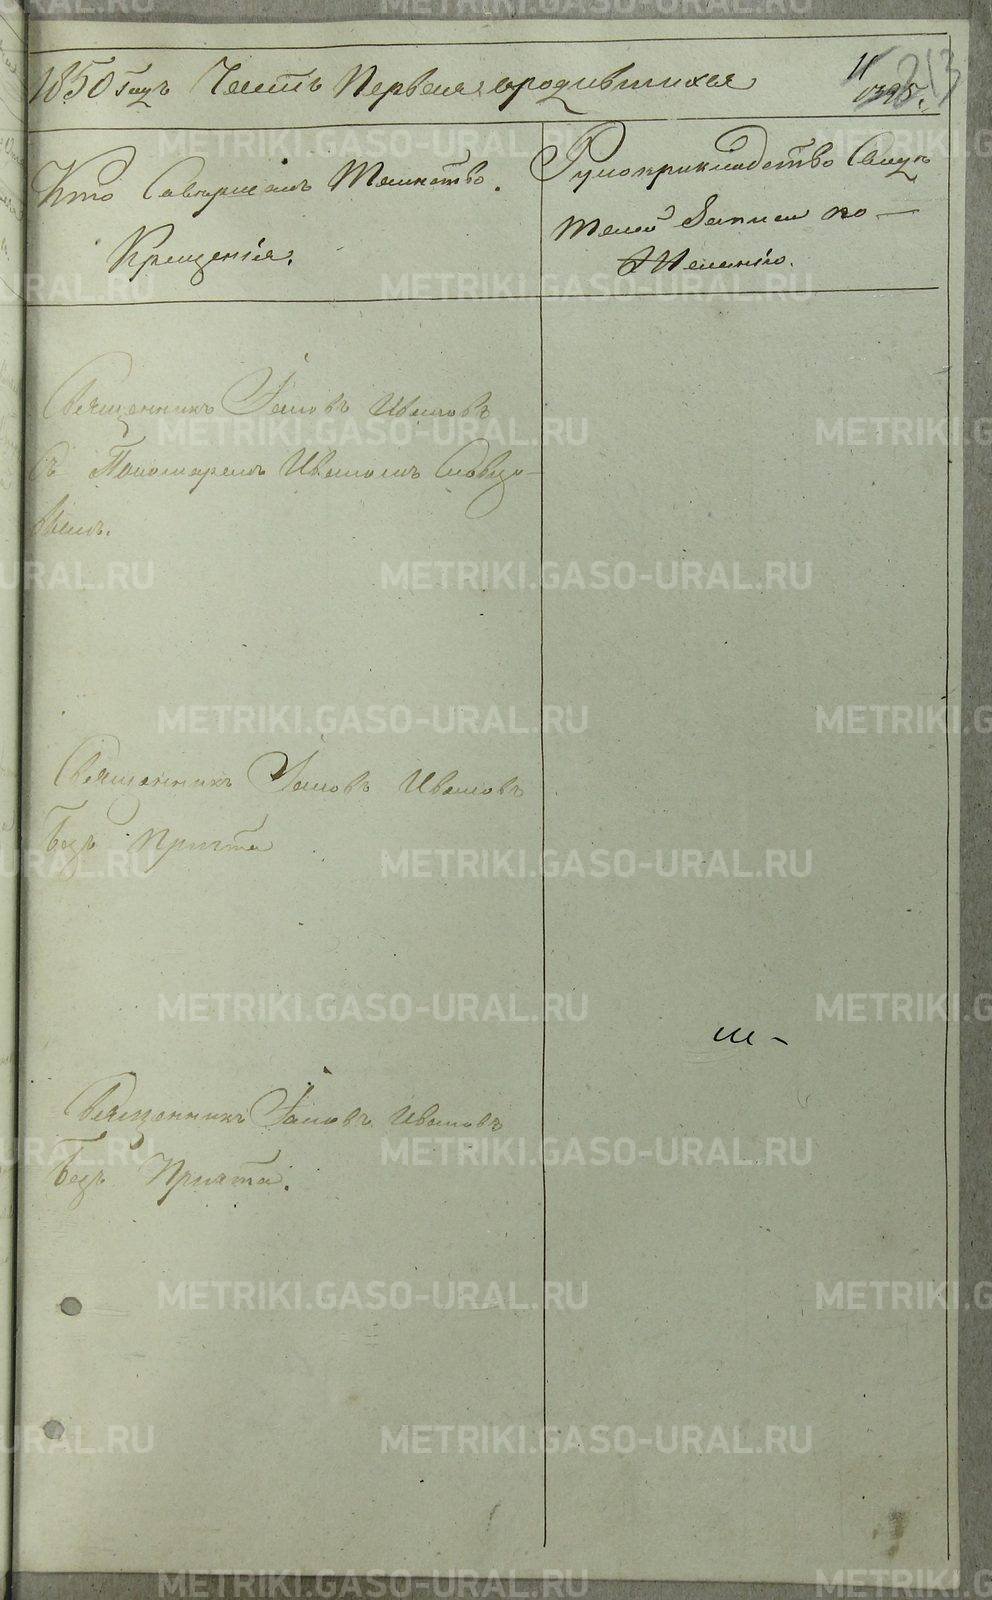 1850 Годъ Часть Первая о родившихся
11
213
Кто Совершалъ Таинство
Крещенія.
Рукоприкладство Свидѣ
телей Записи по
Желанію.
Священникъ Іаковъ Ивановъ
съ Пономаремъ Иваномъ Словцо-
вымъ.
Священникъ Іаковъ Ивановъ
Безъ Причта
Священникъ Іаковъ Ивановъ
Безъ Причта.
METRIKI.GASO-URAL.RU